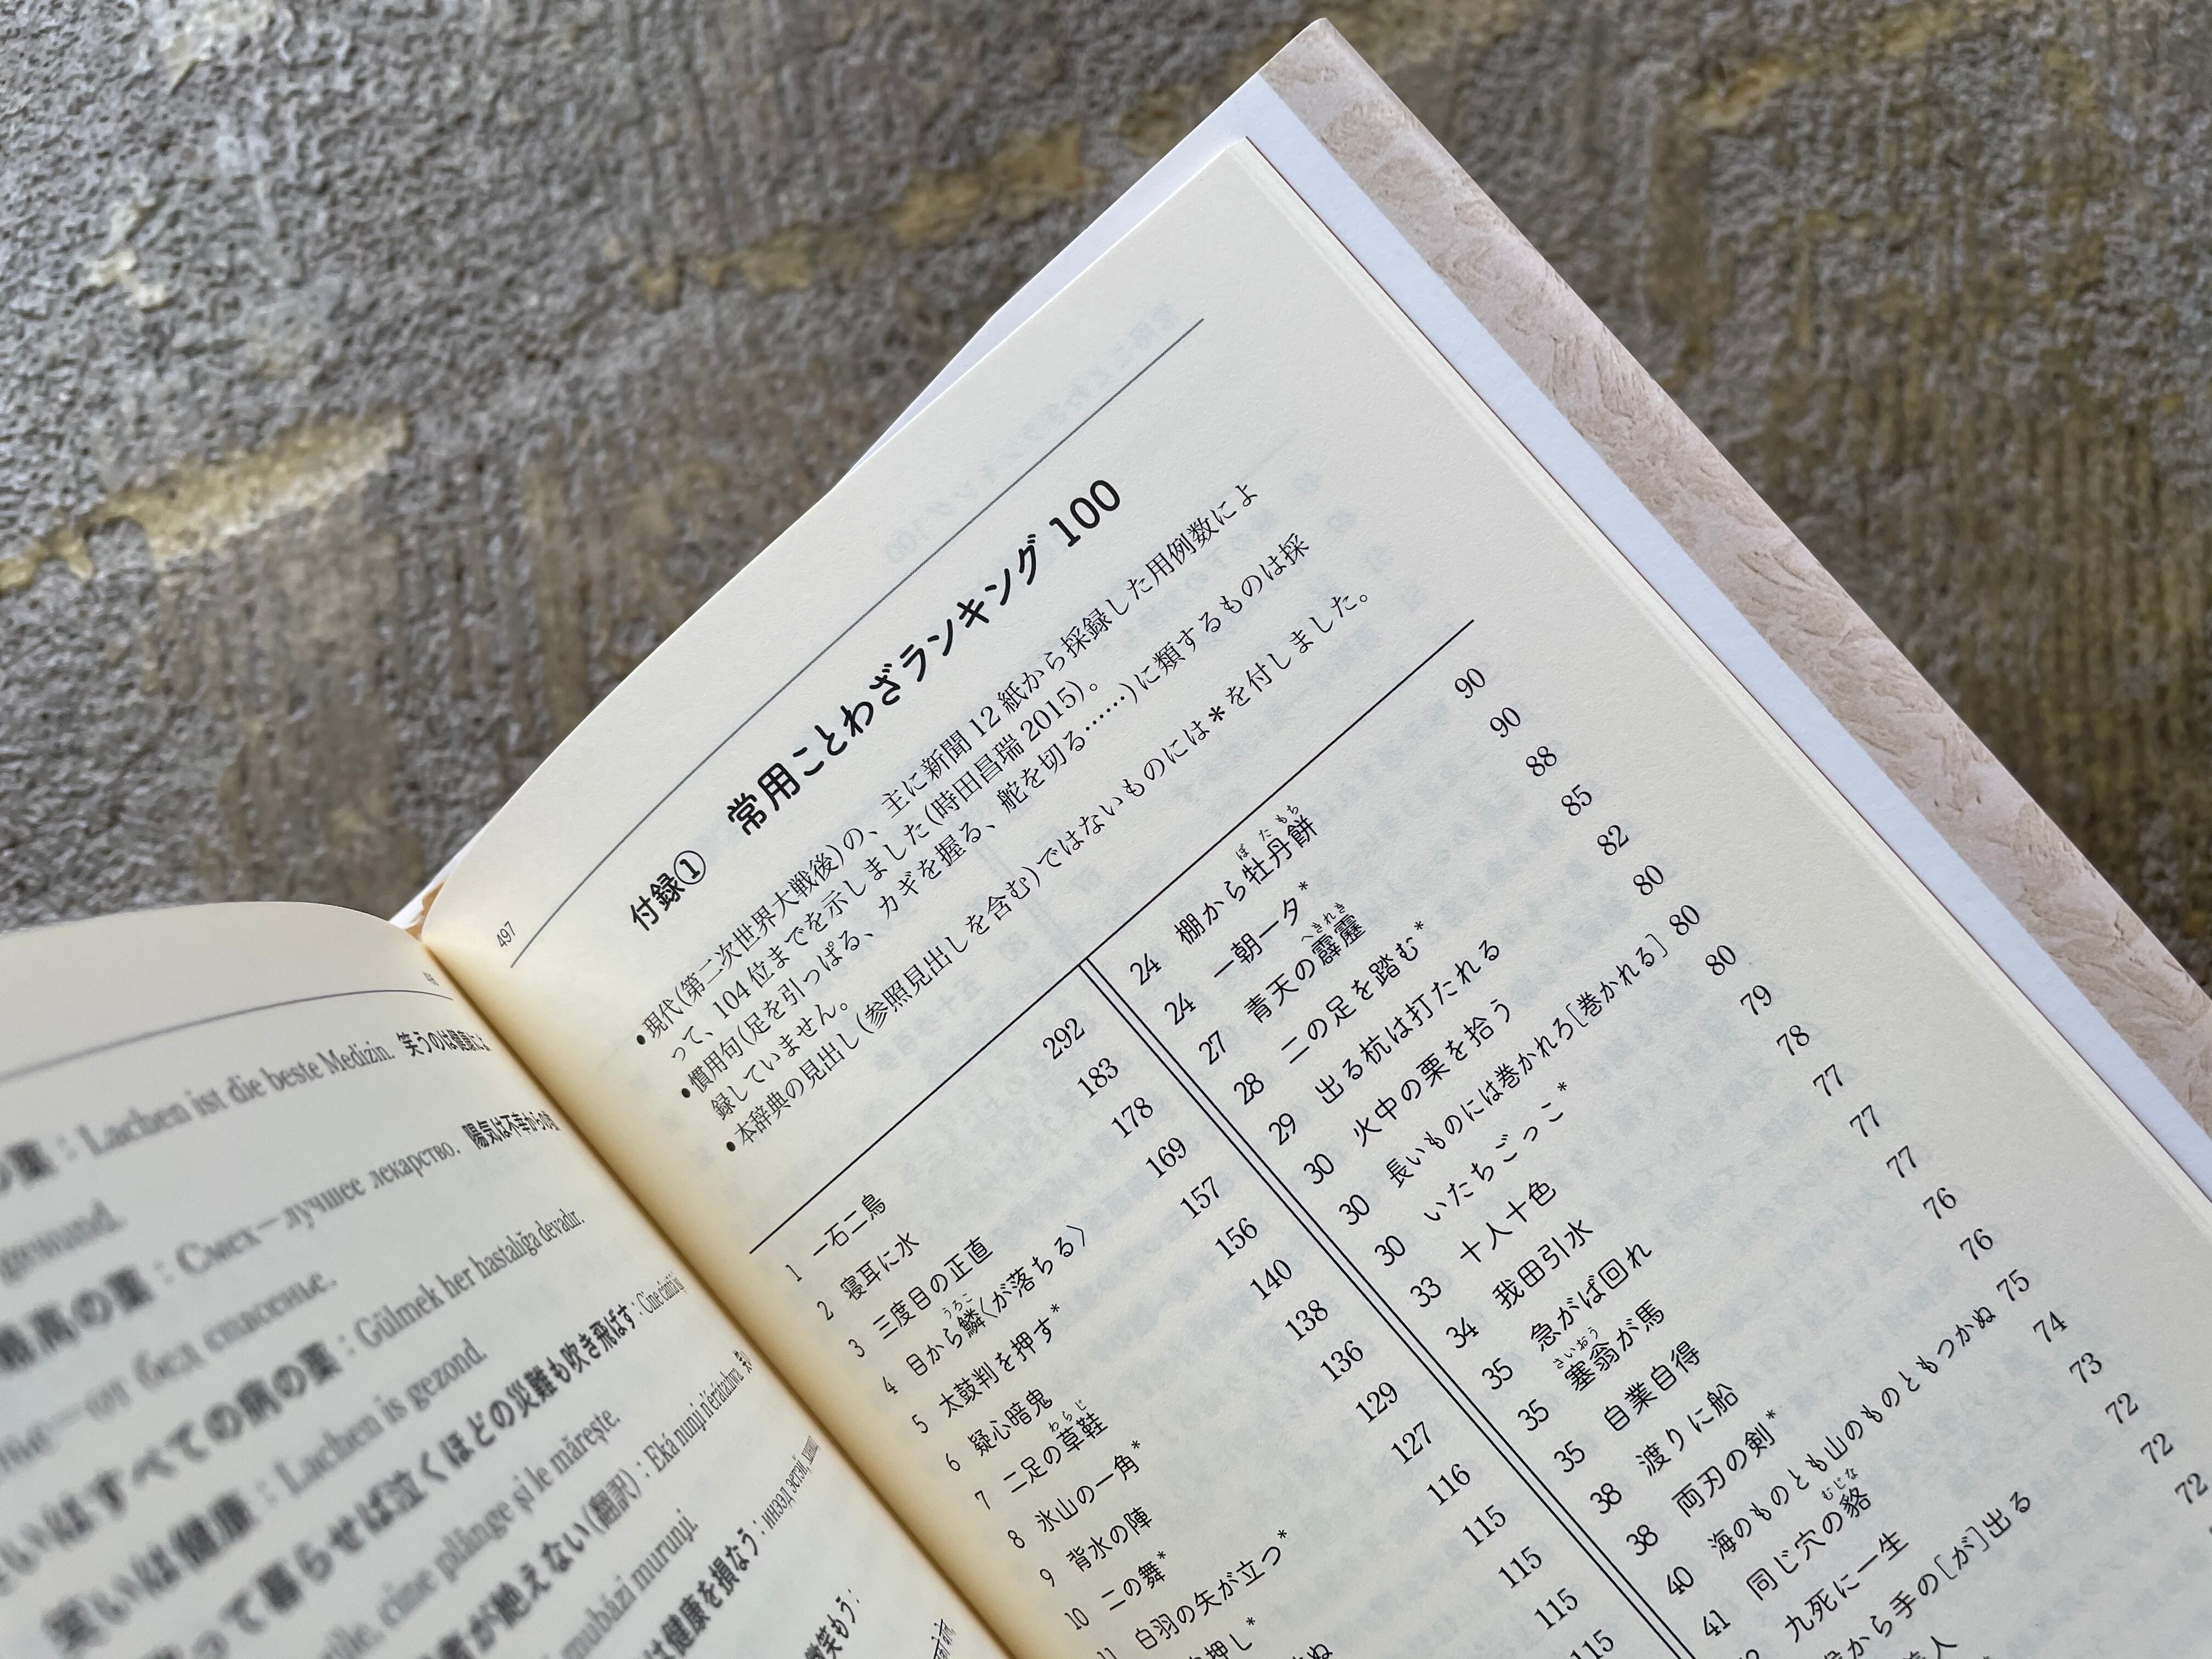 Lachen ist die beste Medizin. 笑うのは健康に
gesund.
最高の薬：Смех—лучшее лекарство. 陽気は不幸からの
бел спасенье.
いはすべての病の薬：Gülmek her hastalığa devadır.
笑いは健康：Lachen is gezond.
って暮らせば泣くほどの災難も吹き飛ばす：Cine
cine plânge și le mărește.
が絶えない(翻訳)：Eká nunji
mubázi murunji.
は健康を損なう：
497
付録① 常用ことわざランキング 100
●現代(第二次世界大戦後)の、主に新聞 12 紙から採録した用例数によ
って、104 位までを示しました(時田昌瑞 2015)。
●慣用句(足を引っぱる、カギを握る、舵を切る……)に類するものは採
録していません。
●本辞典の見出し(参照見出しを含む)ではないものには＊を付しました。
1 一石二鳥 292
2 寝耳に水 183
3 三度目の正直 178
4 目から鱗〈が落ちる〉 169
うろこ
5 太鼓判を押す* 157
6 疑心暗鬼 156
7 二足の草鞋 140
わらじ
8 氷山の一角* 138
9 背水の陣 136
10 二の舞* 129
11 白羽の矢が立つ* 127
押し* 116
115
115
115
115
24 棚から牡丹餅 90
ぼたもち
24 一朝一夕* 90
27 青天の霹靂 88
へきれき
28 二の足を踏む* 85
29 出る杭は打たれる 82
30 火中の栗を拾う 80
30 長いものには巻かれろ[巻かれる] 80
30 いたちごっこ* 80
33 十人十色 79
34 我田引水 78
35 急がば回れ 77
35 塞翁が馬 77
さいおう
35 自業自得 77
38 渡りに船 76
38 両刃の剣* 76
40 海のものとも山のものともつかぬ 75
41 同じ穴の貉 74
むじな
九死に一生 73
から手の[が]出る 72
美人 72
72